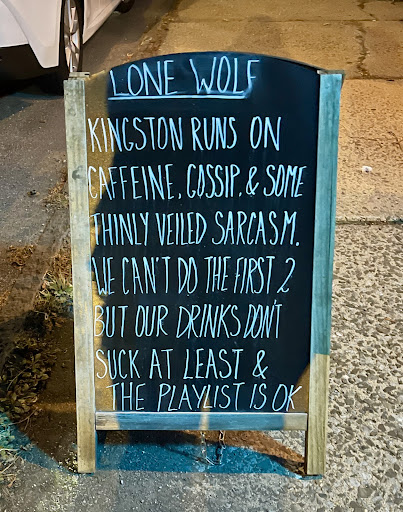 LONE WOLF
KINGSTON RUNS ON
CAFFEINE, GOSSIP, & SOME
THINLY VEILED SARCASM.
WE CAN'T DO THE FIRST 2
BUT OUR DRINKS DON'T
SUCK AT LEAST &
THE PLAYLIST IS OK